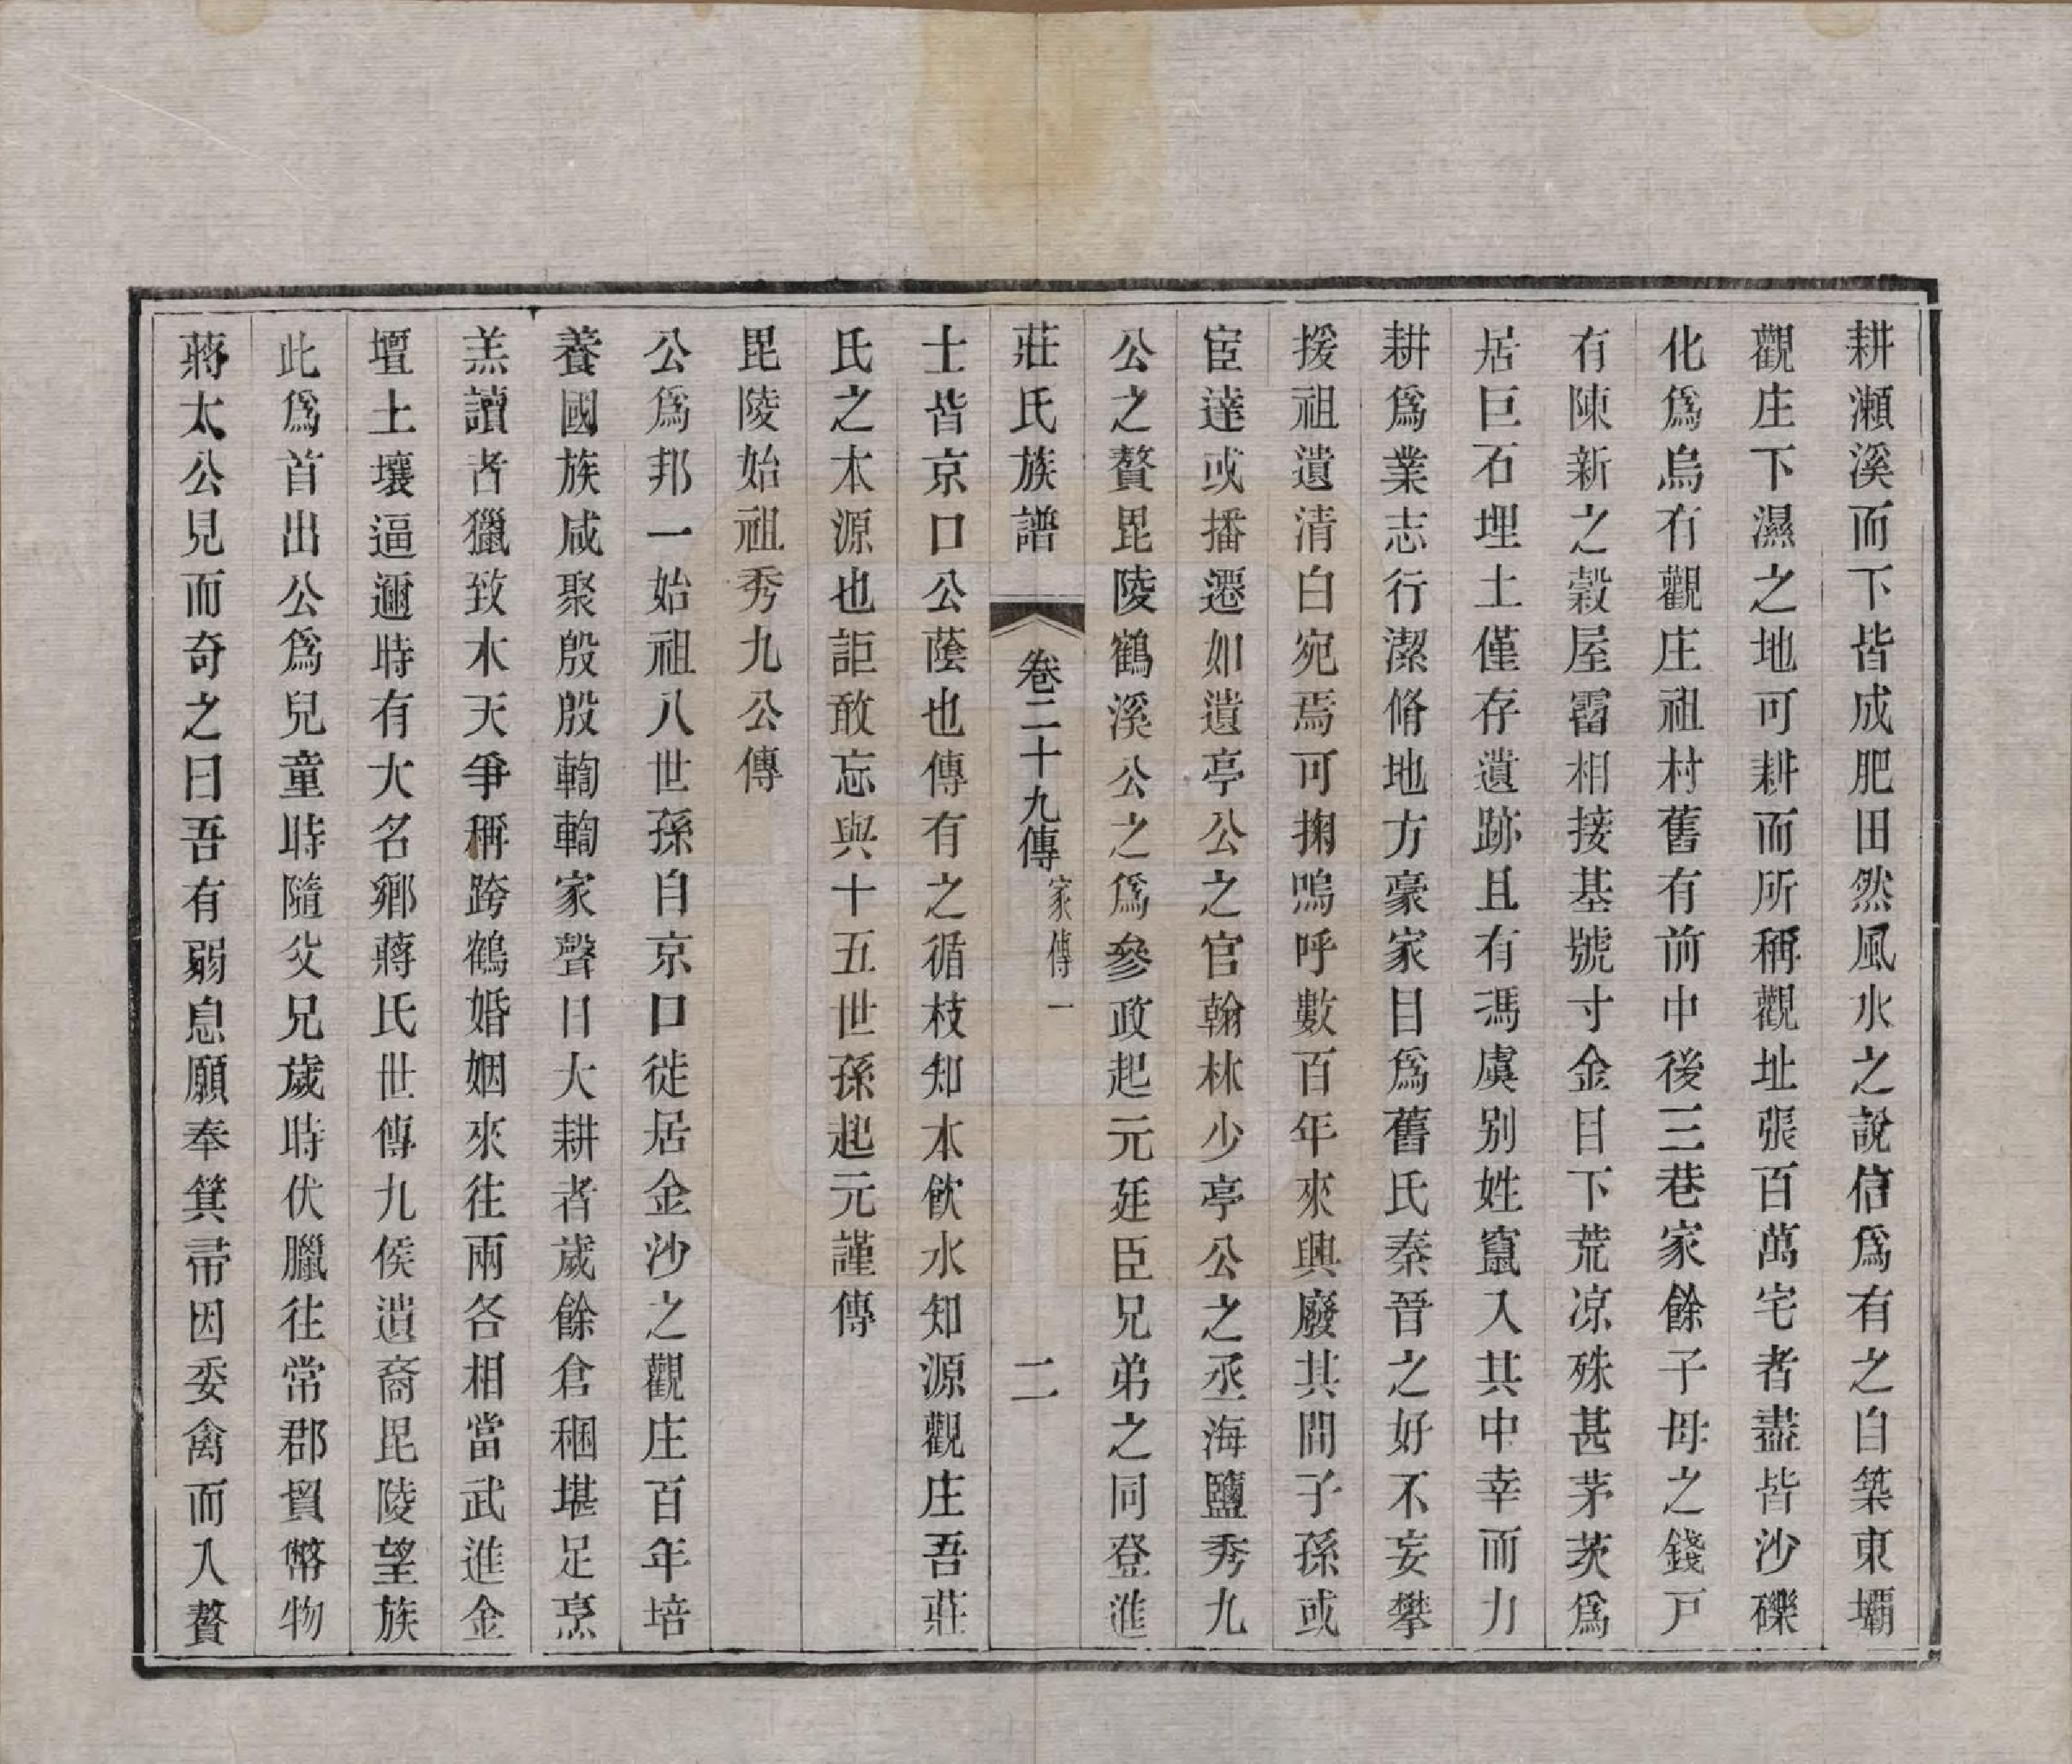 耕瀨溪而下皆成肥田然風水之說信爲有之自築東壩
觀庄下濕之地可耕而所稱觀址張百萬宅者盡皆沙礫
化爲烏有觀庄祖村舊有前中後三巷家餘子母之錢戸
有陳新之穀屋霤相接基號寸金目下荒凉殊甚茅茨爲
居巨石埋土僅存遺跡且有馮虞別姓竄入其中幸而力
耕爲業志行潔脩地方豪家目爲舊氏秦晉之好不妄攀
援祖遺清白宛焉可掬嗚呼數百年來興廢其間子孫或
宦達或播遷如遺亭公之官翰林少亭公之丞海鹽秀九
公之贅毘陵鶴溪公之爲參政起元廷臣兄弟之同登進
莊氏族譜 卷二十九傳 家傳一 二
士皆京口公蔭也傳有之循枝知本飮水知源觀庄吾莊
氏之本源也詎敢忘與十五世孫起元謹傳
毘陵始祖秀九公傳
公爲邦一始祖八世孫自京口徙居金沙之觀庄百年培
養國族咸聚殷殷輷輷家聲日大耕者歲餘倉稇堪足烹
羔讀者獵致木天爭稱跨鶴婚姻來往兩各相當武進金
壇上壤逼邇時有大名鄉蔣氏世傳九侯遺裔毘陵望族
此爲首出公爲兒童時隨父兄歲時伏臘往常郡貿幣物
蔣太公見而奇之曰吾有弱息願奉箕帚因委禽而入贅